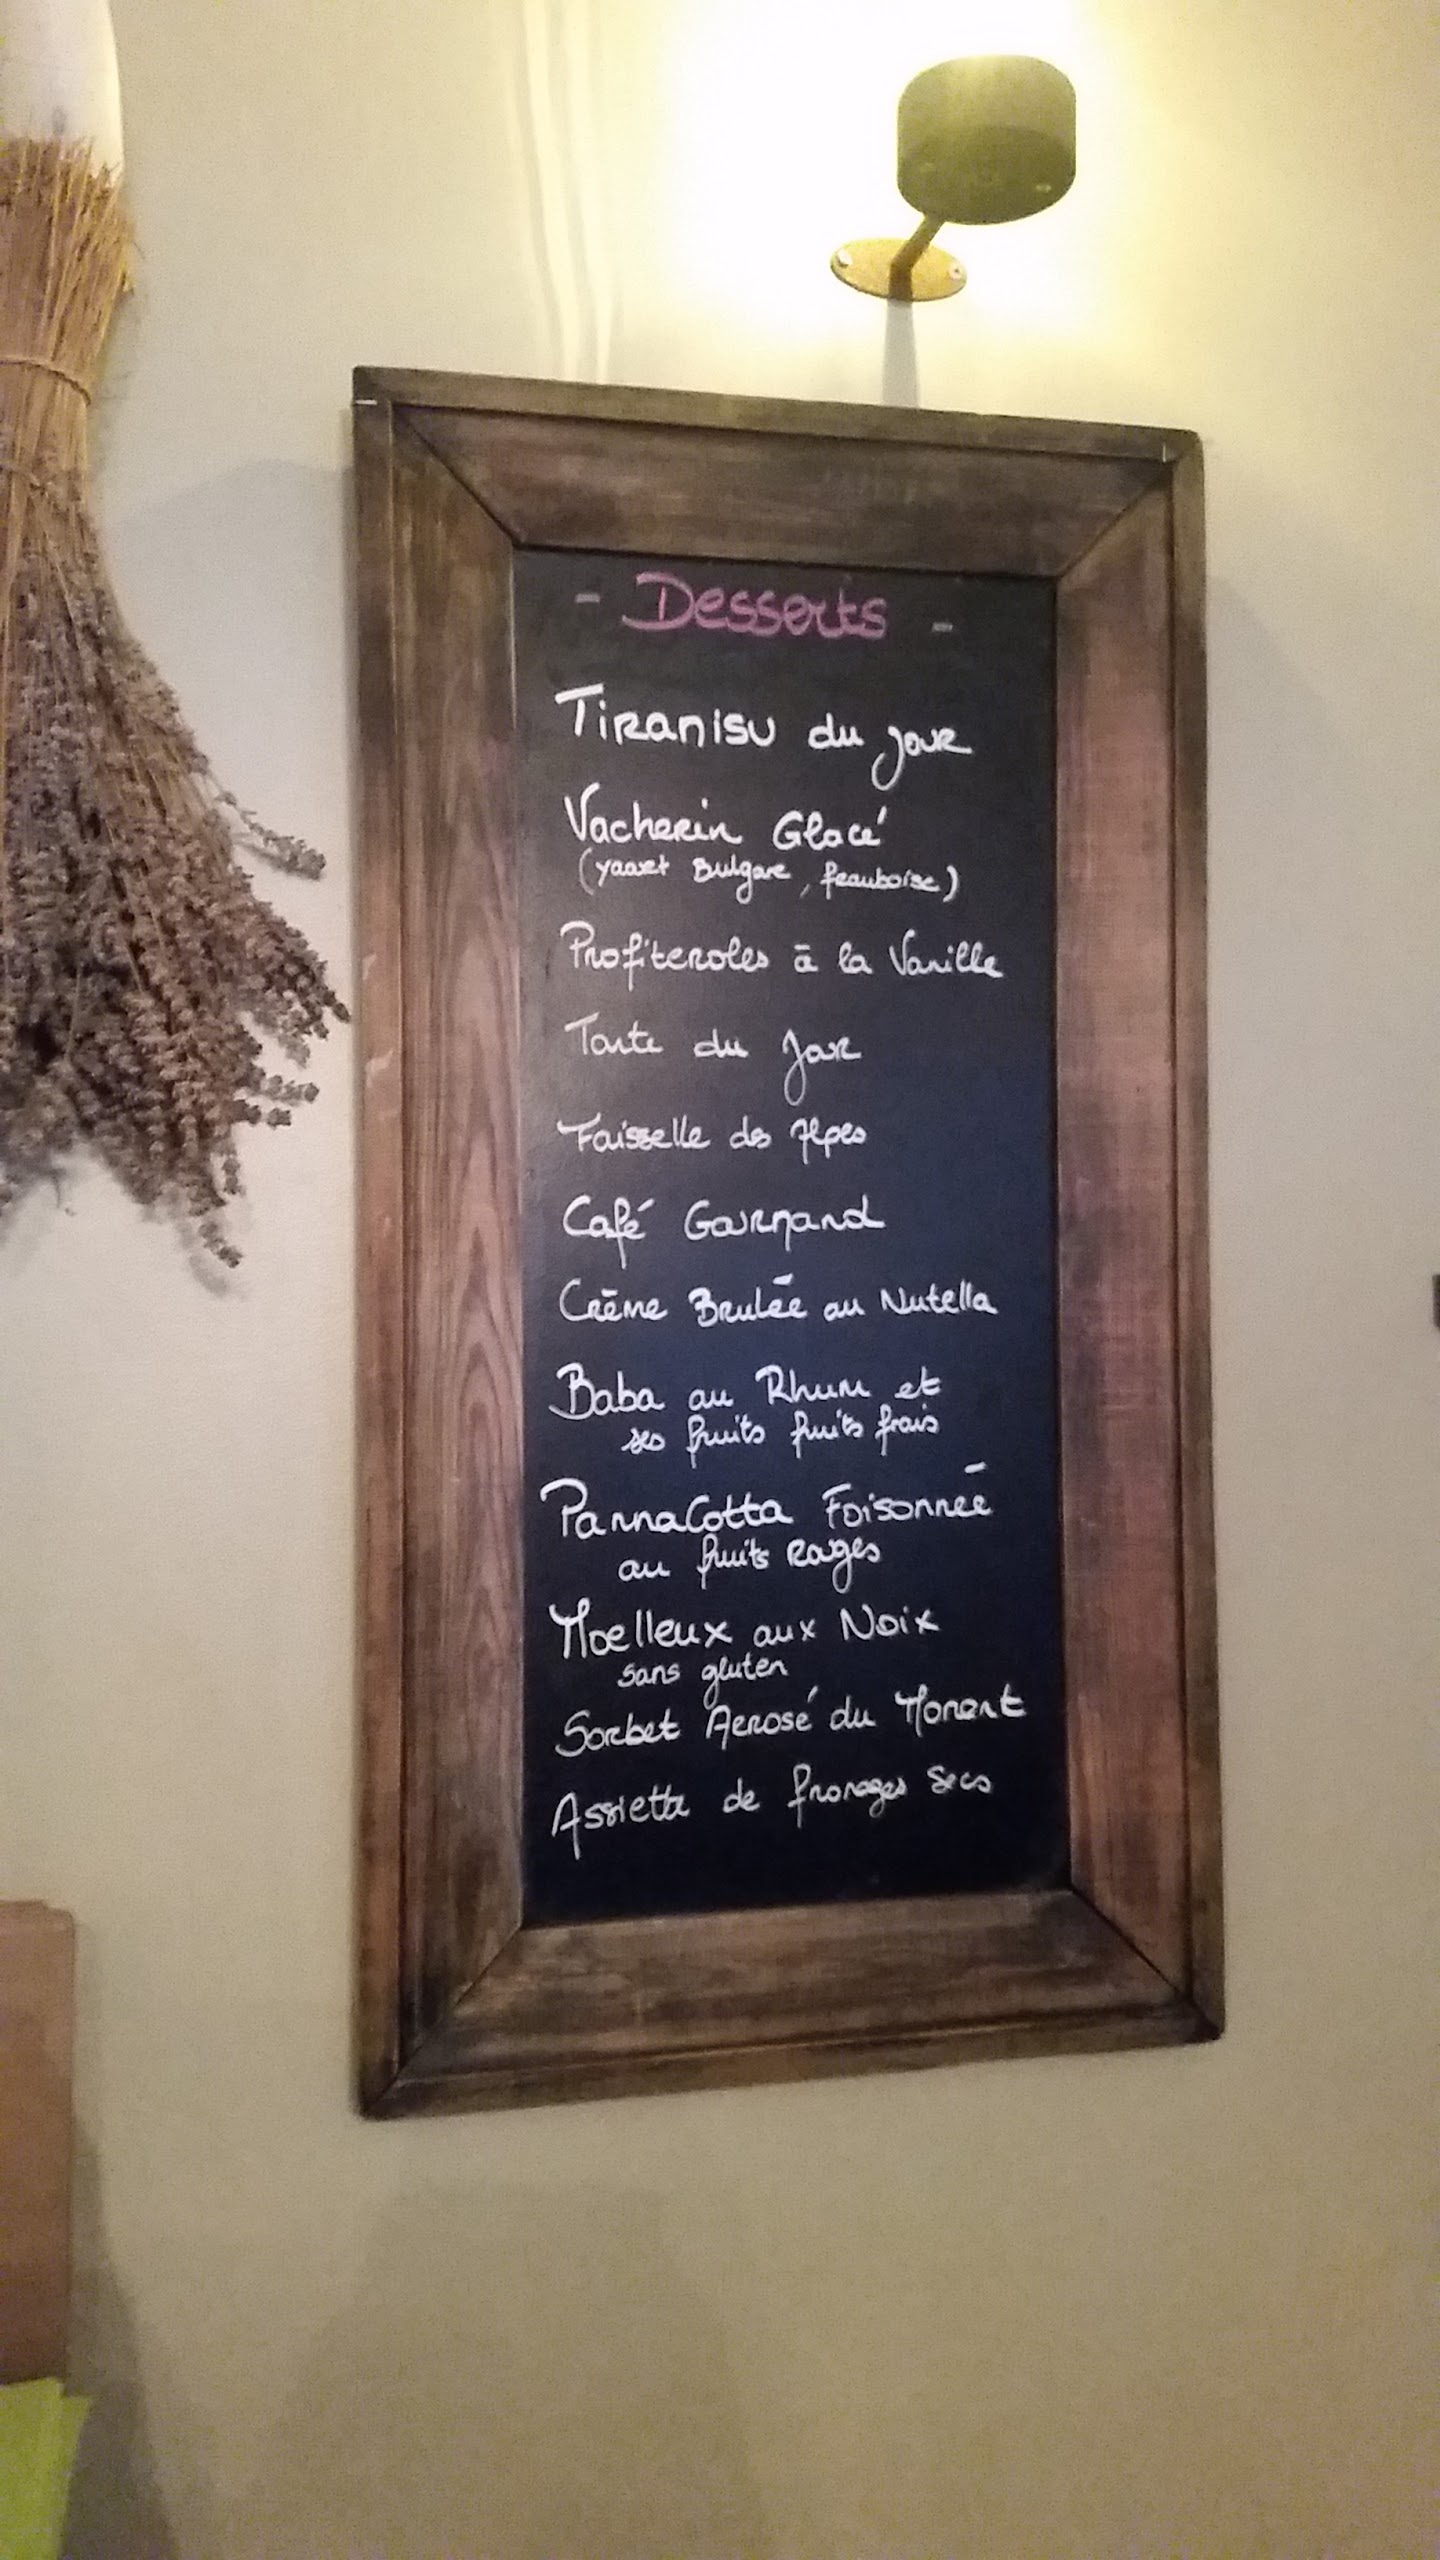 - Desserts -
Tiramisu du jour
Vacherin Glacé
(yaourt Bulgare, framboise)
Profiteroles à la Vanille
Tarte du Jour
Faisselle des Alpes
Café Gourmand
Crème Brulée au Nutella
Baba au Rhum et
ses fruits fruits frais
PannaCotta Foisonnée
au fruits Rouges
Moelleux aux Noix
sans gluten
Sorbet Aerosé du Moment
Assiette de fromages secs